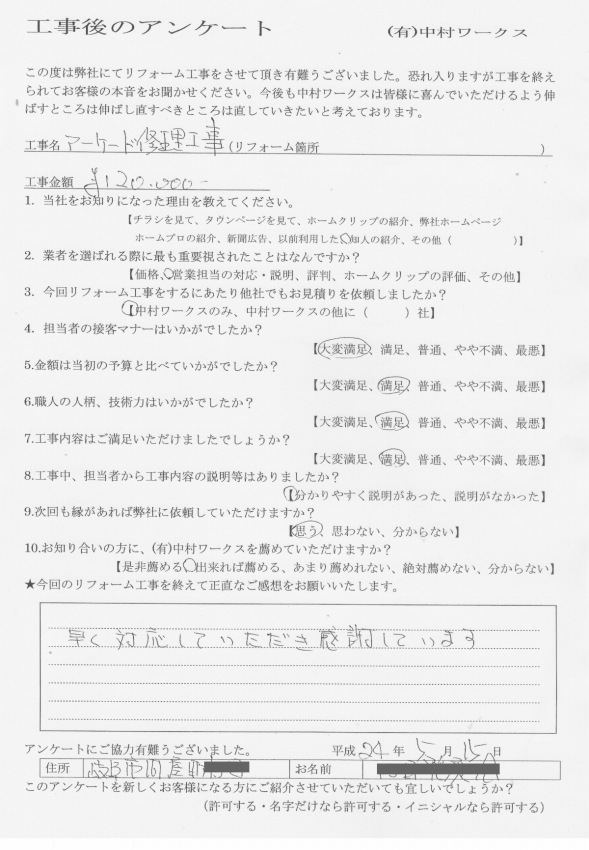 工事後のアンケート　(有)中村ワークス
この度は弊社にてリフォーム工事をさせて頂き有難うございました。恐れ入りますが工事を終え
られてお客様の本音をお聞かせください。今後も中村ワークスは皆様に喜んでいただけるよう伸
ばすところは伸ばし直すべきところは直していきたいと考えております。
工事名 アーケード修理工事 (リフォーム箇所　　　)
工事金額 ¥120.000-
1. 当社をお知りになった理由を教えてください。
【チラシを見て、タウンページを見て、ホームクリップの紹介、弊社ホームページ
ホームプロの紹介、新聞広告、以前利用した、知人の紹介、その他（　　　）】
2. 業者を選ばれる際に最も重要視されたことはなんですか？
【価格、営業担当の対応・説明、評判、ホームクリップの評価、その他】
3. 今回リフォーム工事をするにあたり他社でもお見積りを依頼しましたか？
【中村ワークスのみ、中村ワークスの他に（　　）社】
4. 担当者の接客マナーはいかがでしたか？
【大変満足、満足、普通、やや不満、最悪】
5.金額は当初の予算と比べていかがでしたか？
【大変満足、満足、普通、やや不満、最悪】
6.職人の人柄、技術力はいかがでしたか？
【大変満足、満足、普通、やや不満、最悪】
7.工事内容はご満足いただけましたでしょうか？
【大変満足、満足、普通、やや不満、最悪】
8.工事中、担当者から工事内容の説明等はありましたか？
【分かりやすく説明があった、説明がなかった】
9.次回も縁があれば弊社に依頼していただけますか？
【思う、思わない、分からない】
10.お知り合いの方に、(有)中村ワークスを薦めていただけますか？
【是非薦める、出来れば薦める、あまり薦めれない、絶対薦めない、分からない】
★今回のリフォーム工事を終えて正直なご感想をお願いいたします。
早く対応していただき感謝しています
アンケートにご協力有難うございました。　平成 24 年 5 月 15 日
住所 岐阜市　お名前
このアンケートを新しくお客様になる方にご紹介させていただいても宜しいでしょうか？
（許可する・名字だけなら許可する・イニシャルなら許可する）